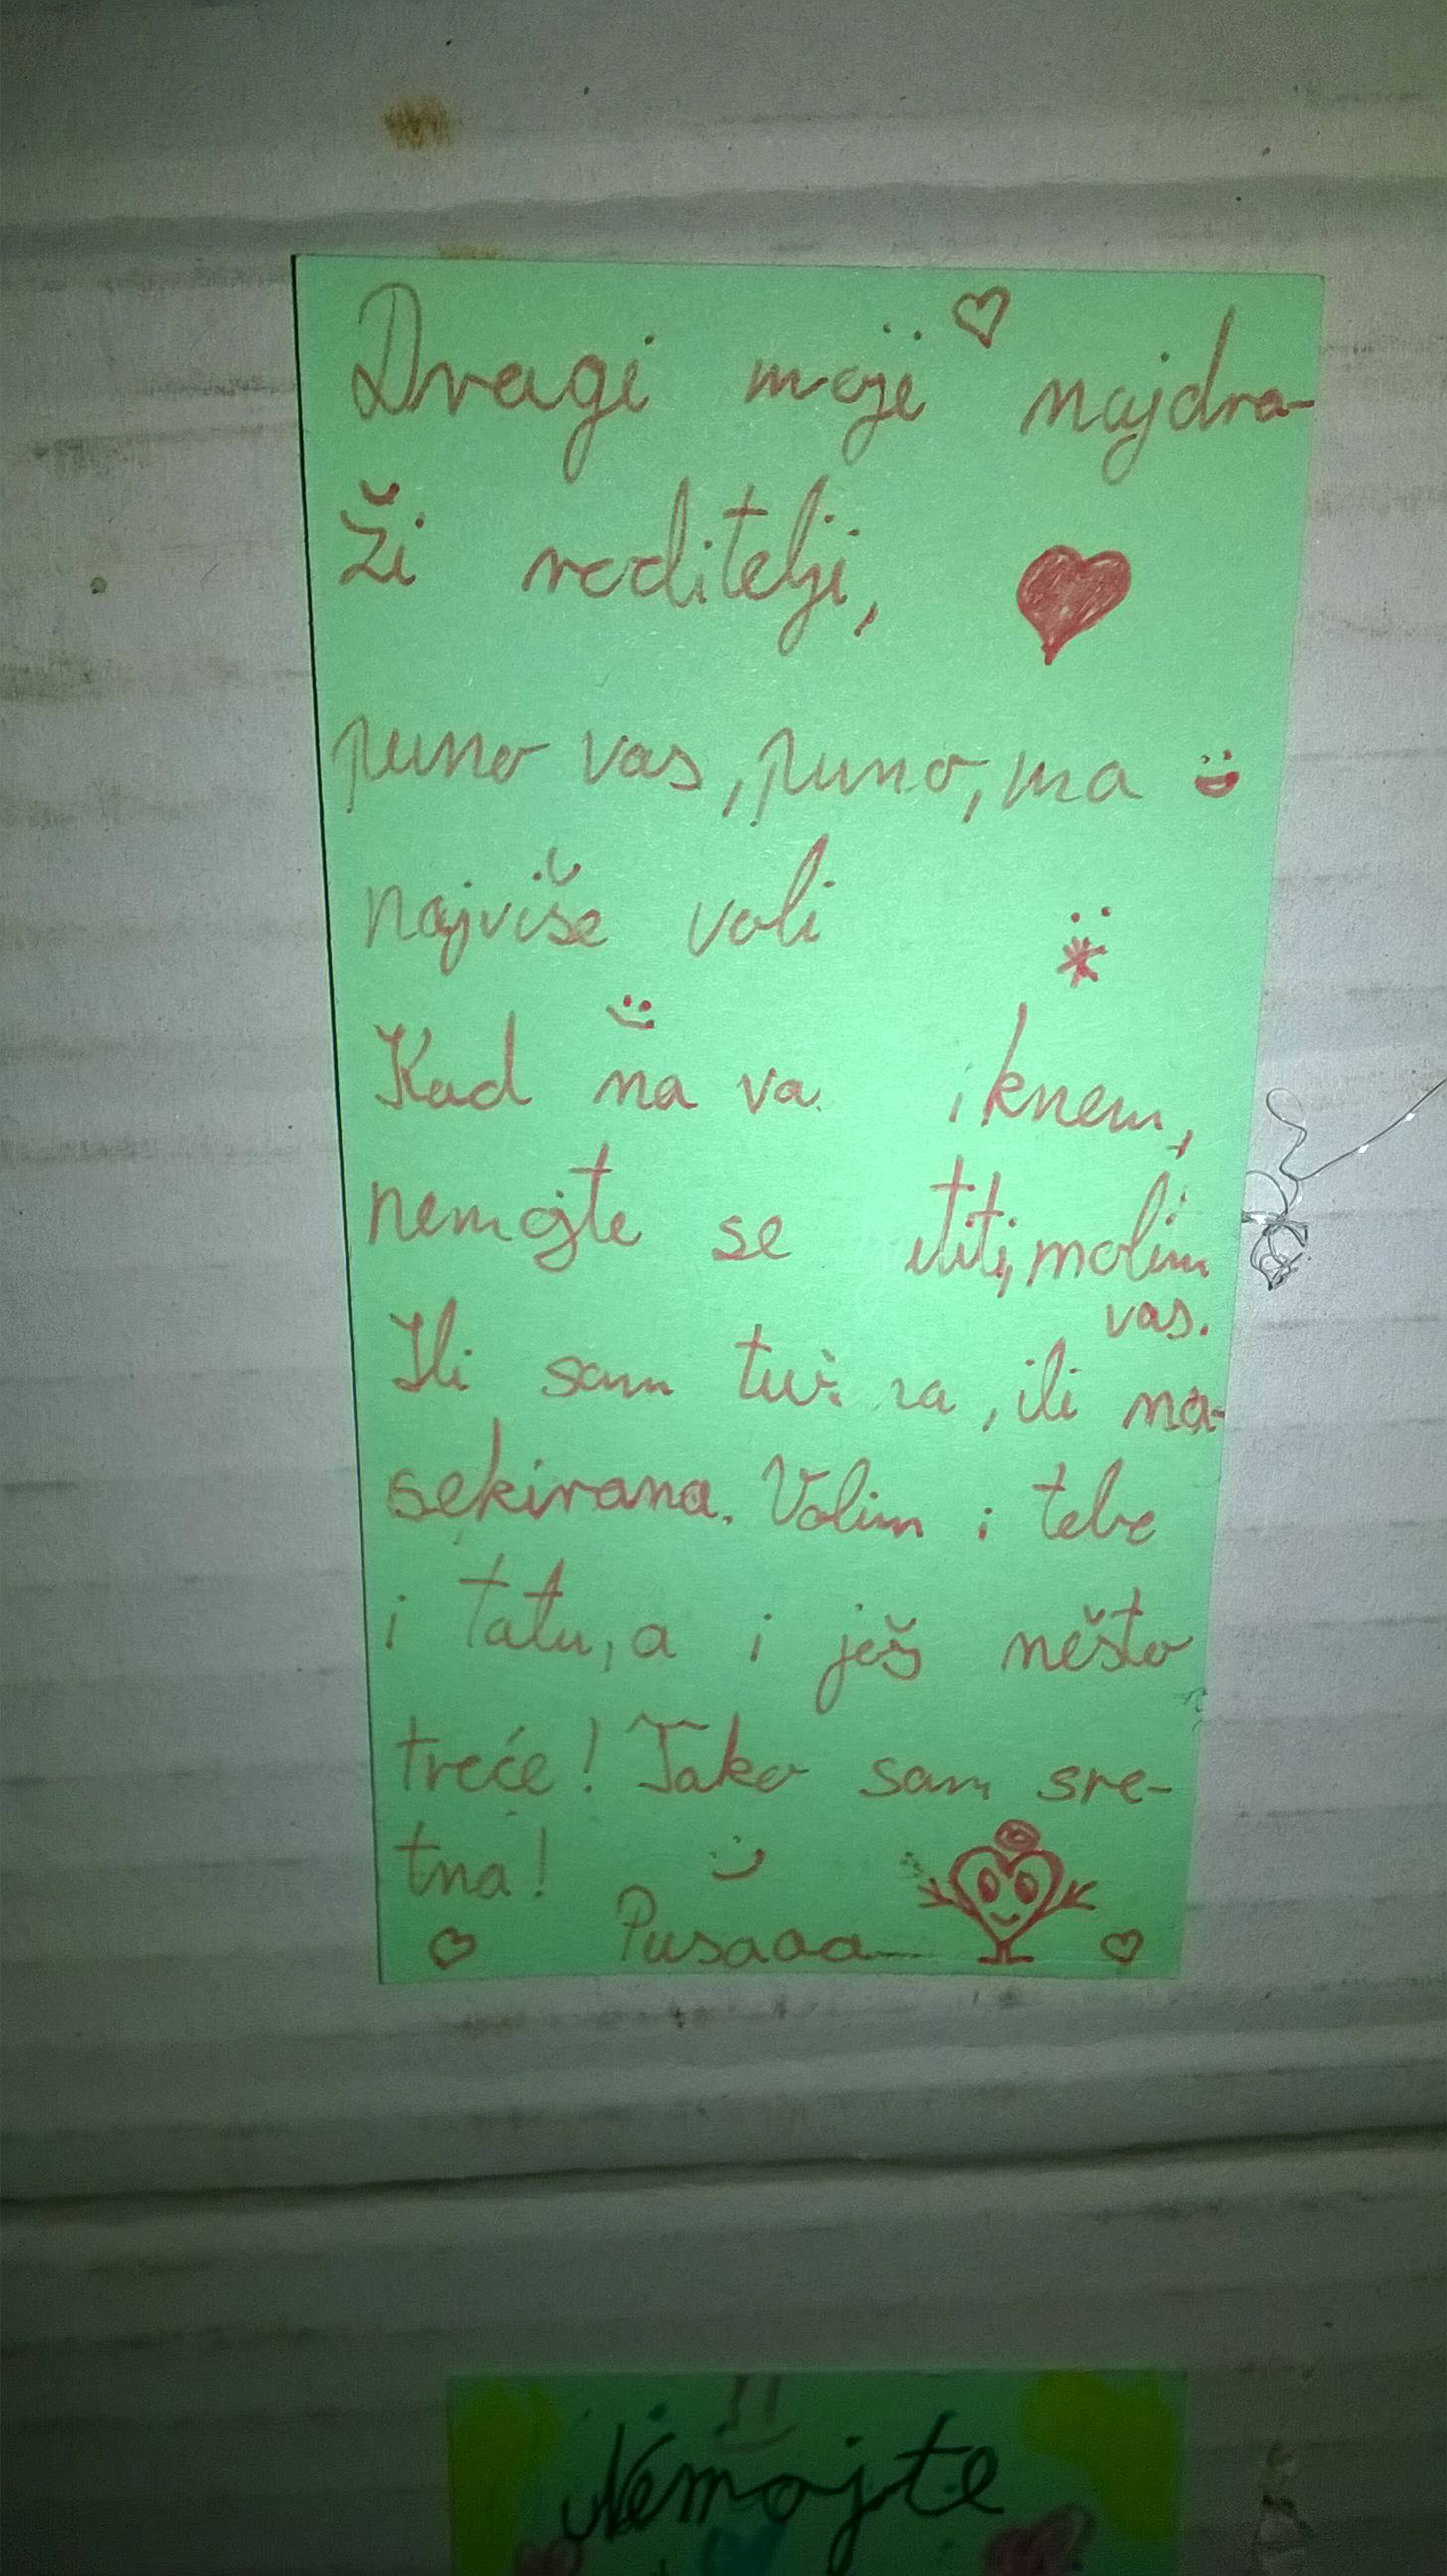 Dragi moji najdra-
ži roditelji,
puno vas, puno, ma
najviše voli
Kad na va iknem,
nemojte se titi, molim
vas.
Ili sam tu ra, ili na-
sekirana. Volim i tebe
i tatu, a i još nešto
treće! Tako sam sre-
tna!
Pusaaa
Nemojte